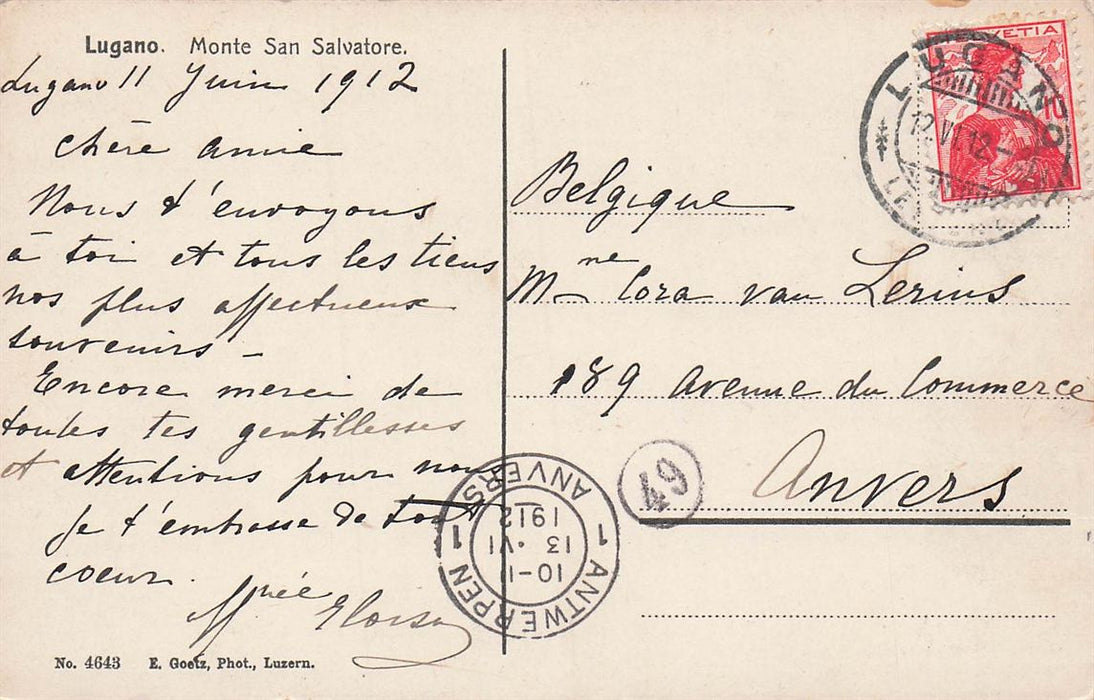 Lugano. Monte San Salvatore.
Lugano 11 Juin 1912
Chère amie
Nous t'envoyons
à toi et tous les tiens
nos plus affectueux
souvenirs –
Encore merci de
toutes tes gentillesses
et attentions pour nous
Je t'embrasse de tout
coeur.
Eloisa
No. 4643 E. Goetz, Phot., Luzern.
HELVETIA
10
LUGANO
12.VI.12
Belgique
Mme Cora van Lerius
189 Avenue du Commerce
Anvers
49
1 ANTWERPEN 1 ANVERS
10-11
13 · VI
1912